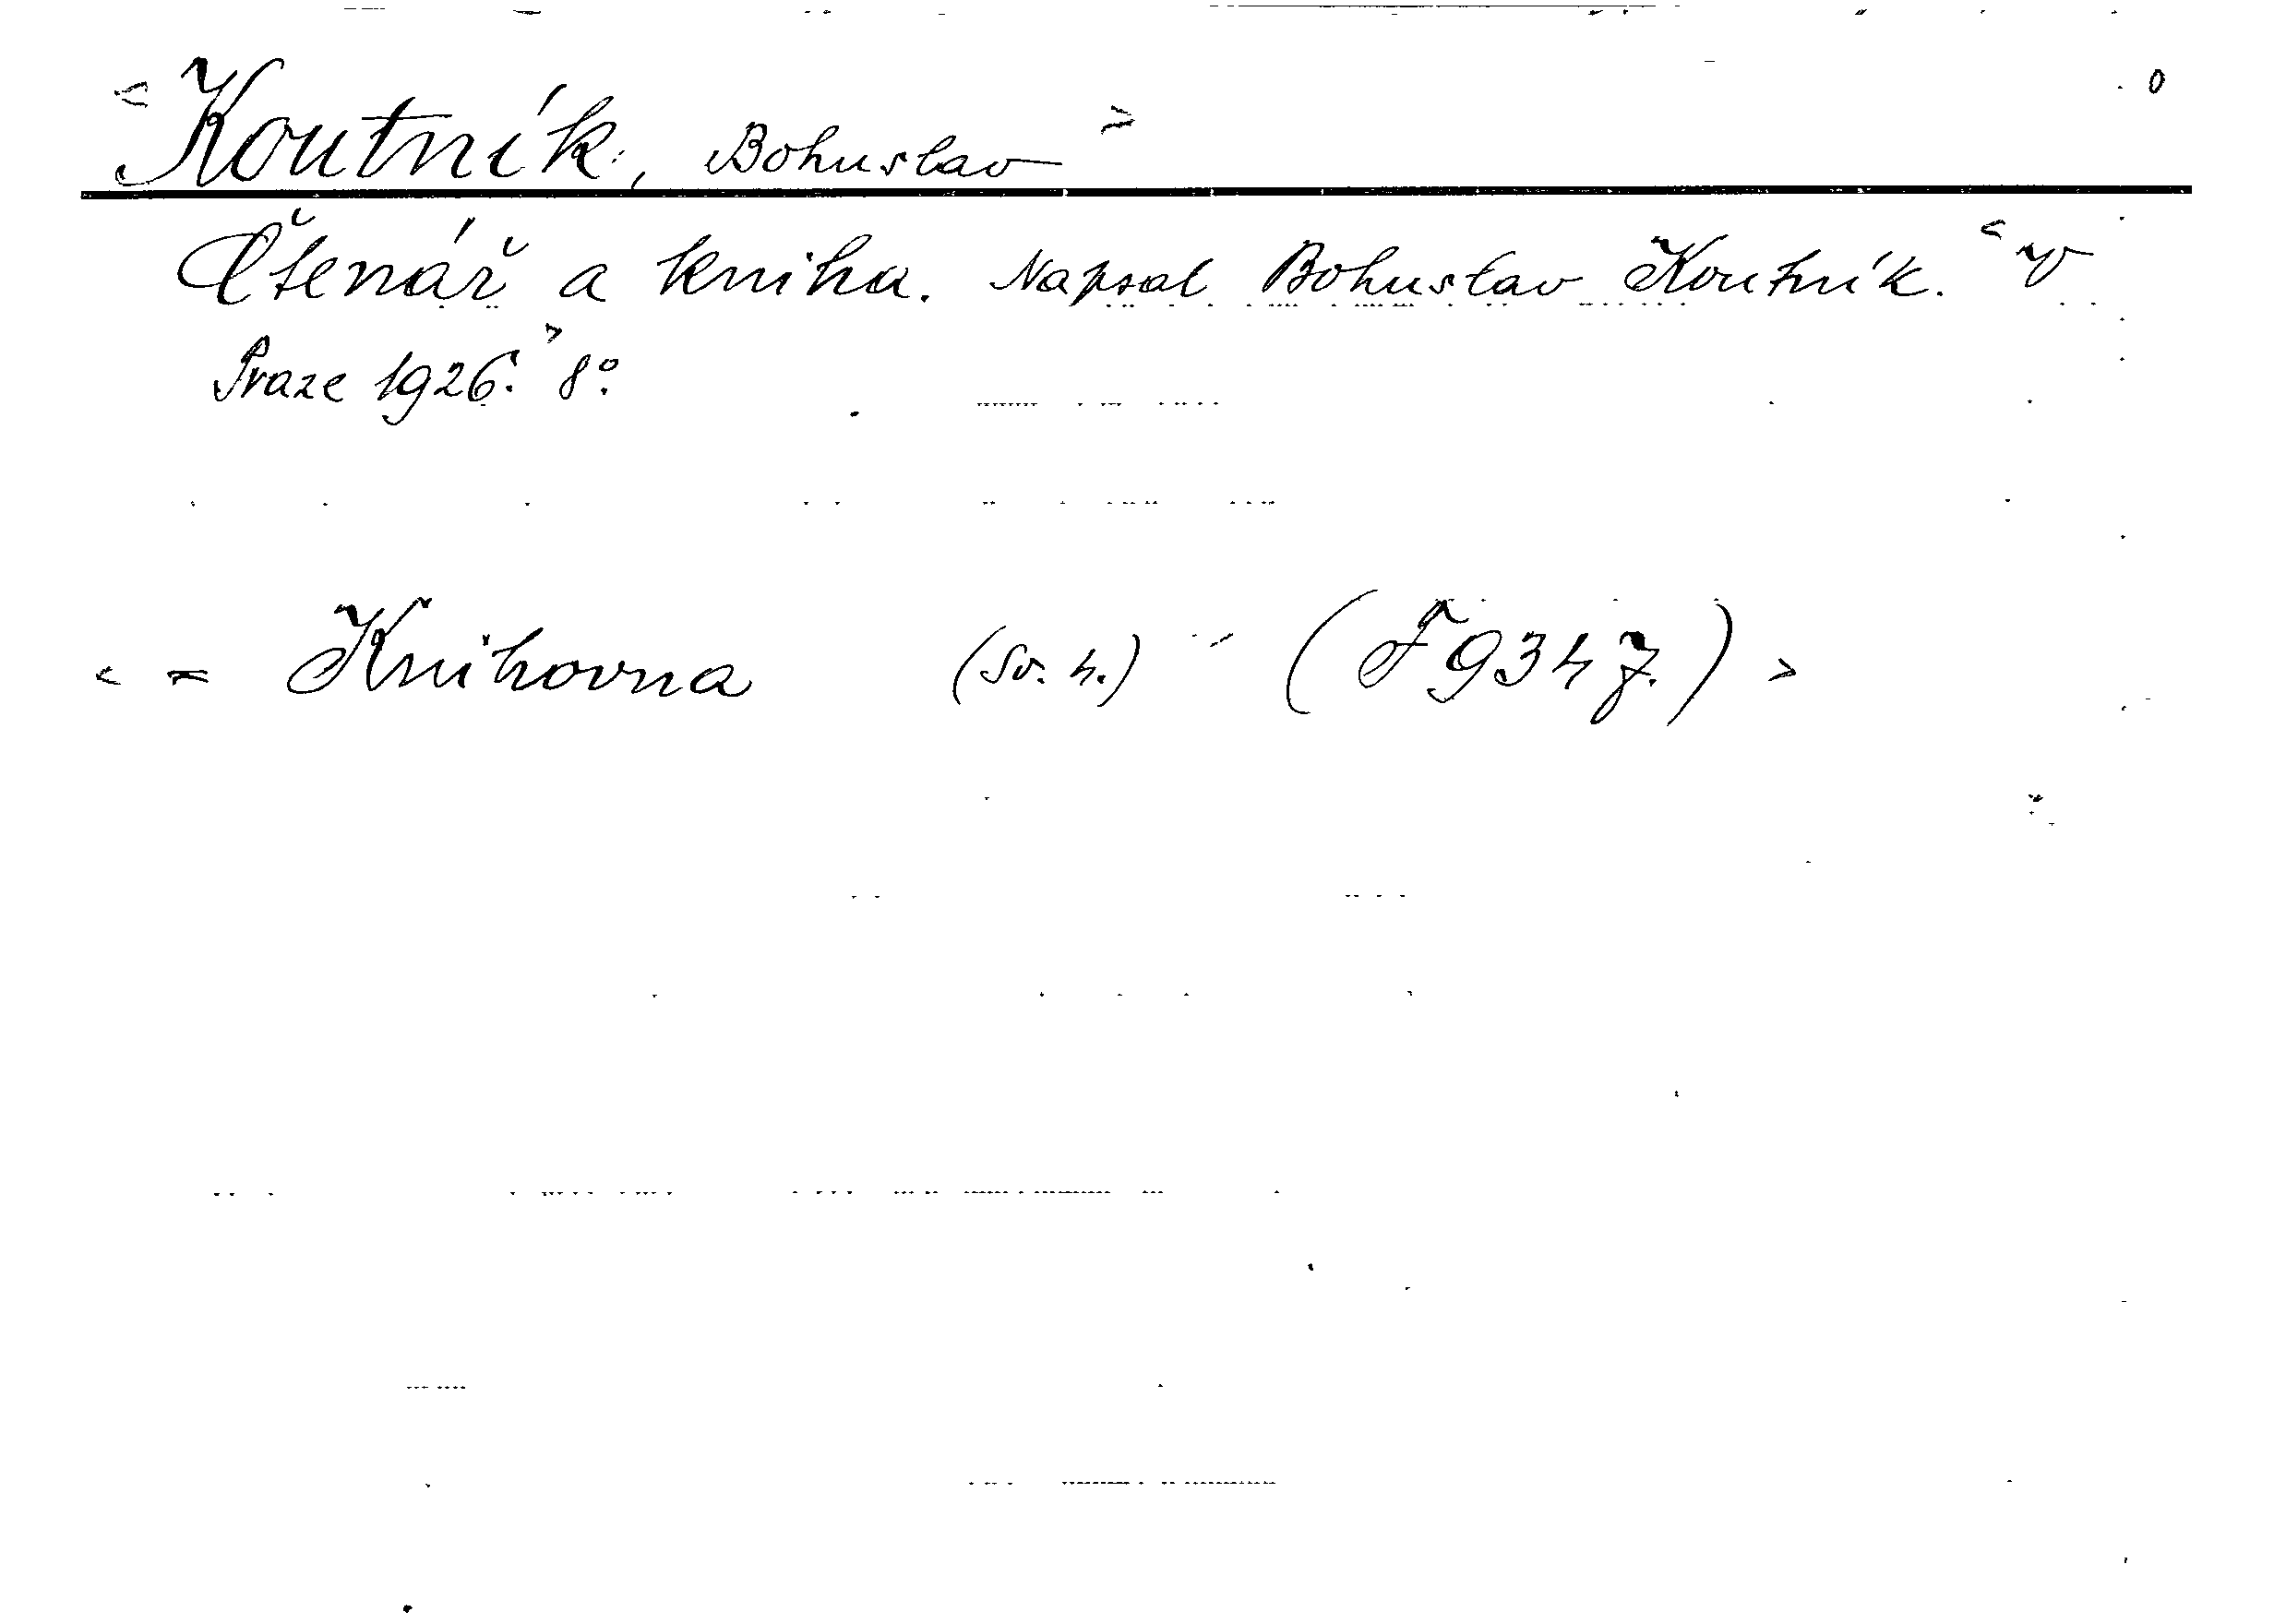 < Koutník, Bohuslav > 0
Čtenář a kniha. Napsal Bohuslav Koutník. < V
Praze 1926. > 8°.
< = Knihovna (Sv. 4.) = (F 9347.) >